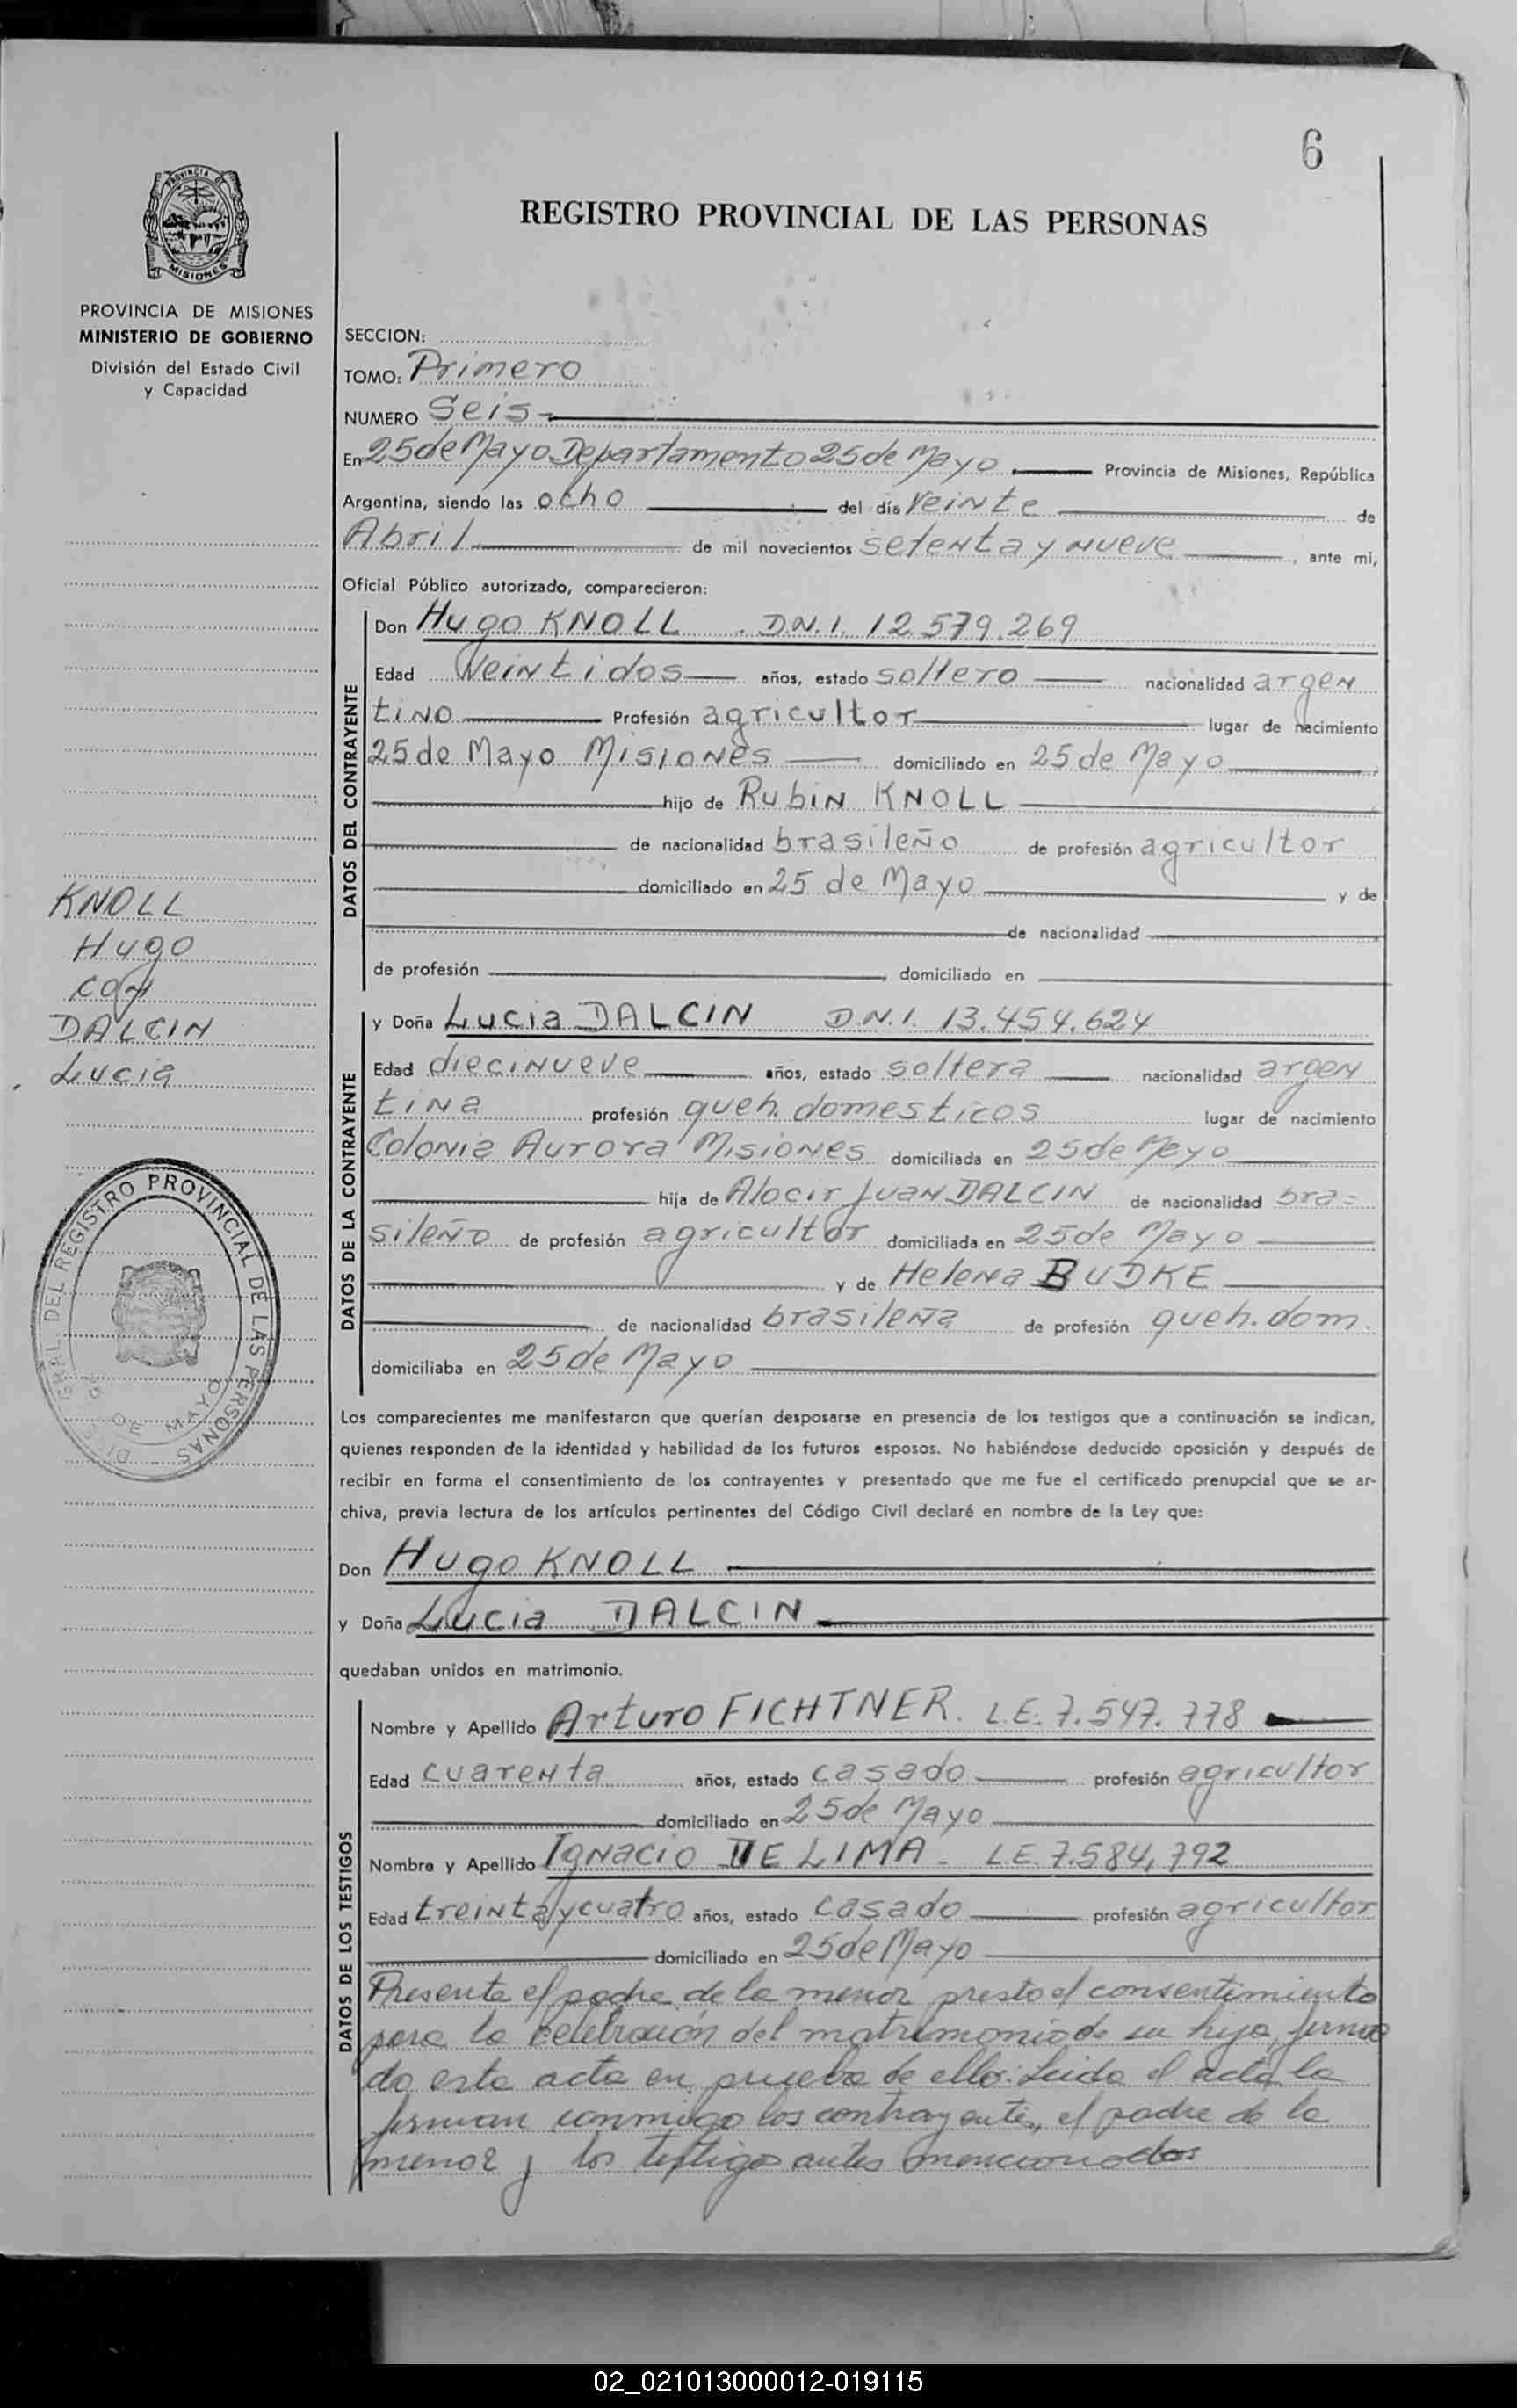 6
REGISTRO PROVINCIAL DE LAS PERSONAS
PROVINCIA DE MISIONES
MINISTERIO DE GOBIERNO
División del Estado Civil
y Capacidad
SECCION:
TOMO: Primero
NUMERO Seis
En 25 de Mayo Departamento 25 de Mayo Provincia de Misiones, República
Argentina, siendo las ocho del día veinte de
Abril de mil novecientos setenta y nueve, ante mi,
Oficial Público autorizado, comparecieron:
DATOS DEL CONTRAYENTE
Don Hugo KNOLL . D.N.I. 12.579.269
Edad Veintidos años, estado soltero nacionalidad argen
tino Profesión agricultor lugar de nacimiento
25 de Mayo Misiones domiciliado en 25 de Mayo
hijo de Rubin KNOLL
de nacionalidad brasileño de profesión agricultor
domiciliado en 25 de Mayo y de
de nacionalidad
de profesión , domiciliado en
KNOLL
Hugo
con
DALCIN
Lucia
DATOS DE LA CONTRAYENTE
y Doña Lucia DALCIN D.N.I. 13.454.624
Edad diecinueve años, estado soltera nacionalidad argen
tina profesión queh. domesticos lugar de nacimiento
Colonia Aurora Misiones domiciliada en 25 de Mayo
hija de Alocir Juan DALCIN de nacionalidad bra=
sileño de profesión agricultor domiciliada en 25 de Mayo
y de Helena BUDKE
de nacionalidad brasileña de profesión queh. dom.
domiciliaba en 25 de Mayo
PROVINCIA DE MISIONES
DIREC. GRAL. DEL REGISTRO PROVINCIAL DE LAS PERSONAS
25 DE MAYO
Los comparecientes me manifestaron que querían desposarse en presencia de los testigos que a continuación se indican,
quienes responden de la identidad y habilidad de los futuros esposos. No habiéndose deducido oposición y después de
recibir en forma el consentimiento de los contrayentes y presentado que me fue el certificado prenupcial que se ar-
chiva, previa lectura de los artículos pertinentes del Código Civil declaré en nombre de la Ley que:
Don Hugo KNOLL
y Doña Lucia DALCIN
quedaban unidos en matrimonio.
DATOS DE LOS TESTIGOS
Nombre y Apellido Arturo FICHTNER. L.E. 7.547.778
Edad cuarenta años, estado casado profesión agricultor
domiciliado en 25 de Mayo
Nombre y Apellido Ignacio DE LIMA - L.E. 7.584.792
Edad treinta y cuatro años, estado casado profesión agricultor
domiciliado en 25 de Mayo
Presente el padre de la menor presto el consentimiento
para la celebración del matrimonio de su hija, firman
do esta acta en prueba de ello: Leida el acta la
firman conmigo los contrayentes, el padre de la
menor y los testigos antes mencionados
02_021013000012-019115